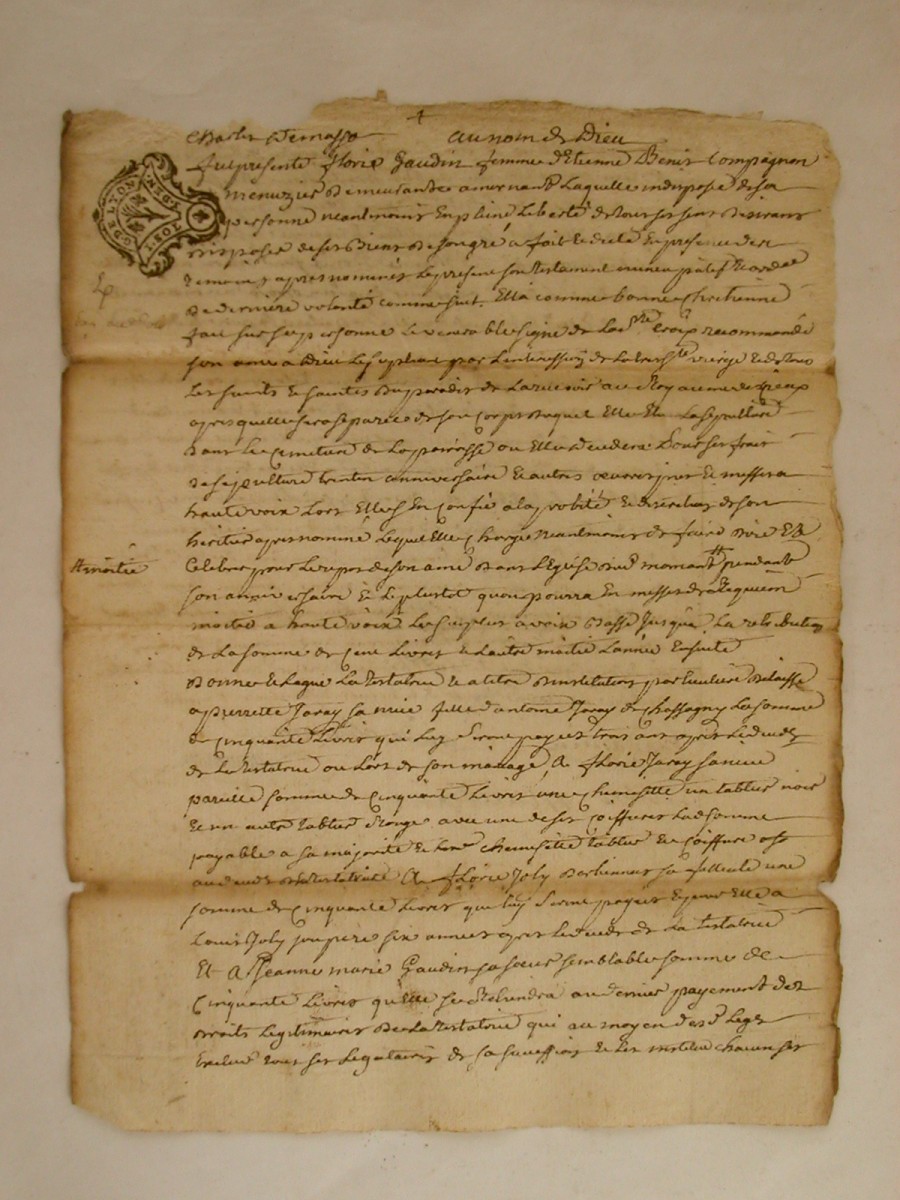 au nom de Dieu
fut presente florie Gaudin femme d'Etienne Benis Compagnon
menuzier demeurante a mornant Laquelle indisposé de sa
personne neantmoins En pleine Liberté de tous ses sens desirant
disposer de ses Biens de son gré a fait et dicté En presence des
temoins apres nommés Le present son testament
de derniere volonté comme suit. Ella comme bonne chretienne
fait sur sa personne Le venerable signe de La Ste Croix recommandé
son ame a Dieu Le supliant par L'intercession de La tres Ste vierge et de tous
Les saints et saintes du paradis de La recevoir au Royaume des Cieux
apres quelle sera separée de son corps duquel Elle Elit La sepulture
dans Le Cimetiere de La paroisse ou Elle decedera. Pour ses frais
de sepulture trentin anniversaire et autres œuvres pies et messes a
haute voix Lors Elle s'En confie a La probité et discretion de son
heritier apres nommé Lequel Elle charge neantmoins de faire dire Et
Celebrer pour Le repos de son ame dans L'Eglise dud mornant # pendant
# moitié
son anniversaire Et Le plustot quon pourra En messes de Requiem
moitié a haute voix Le surplus a voix Basse Jusqua La retribution
de La somme de Cent Livres et L'autre moitié L'année Ensuite
Donne et Legue La testatrice et a titre d'institution particuliere delaisse
a pierrette Jaray sa niece fille d'antoine Jaray de Chassagny La somme
de Cinquante Livres qui Luy seront payés trois ans apres Le deces
de La testatrice ou Lors de son mariage, A florie Jaray sa niece
pareille somme de Cinquante Livres une chemisette un tablier noir
Et un autre tablier rouge avec une de ses coiffures La d somme
payable a sa majorité et Les chemisette tablier Et coiffure
au deces de La testatrice A florie Joly sa filleule une
somme de Cinquante Livres qui Luy seront payés Et pour Elle a
Louis Joly son pere six années apres Le deces de La testatrice
Et A Jeanne marie Gaudin sa sœur semblable somme de
Cinquante Livres qu'Elle se retiendra au dernier payement des
droits Legitimaires de La testatrice qui au moyen des d Legs
Exclut tous ses Legataires de sa succession et Les institue chacun ses